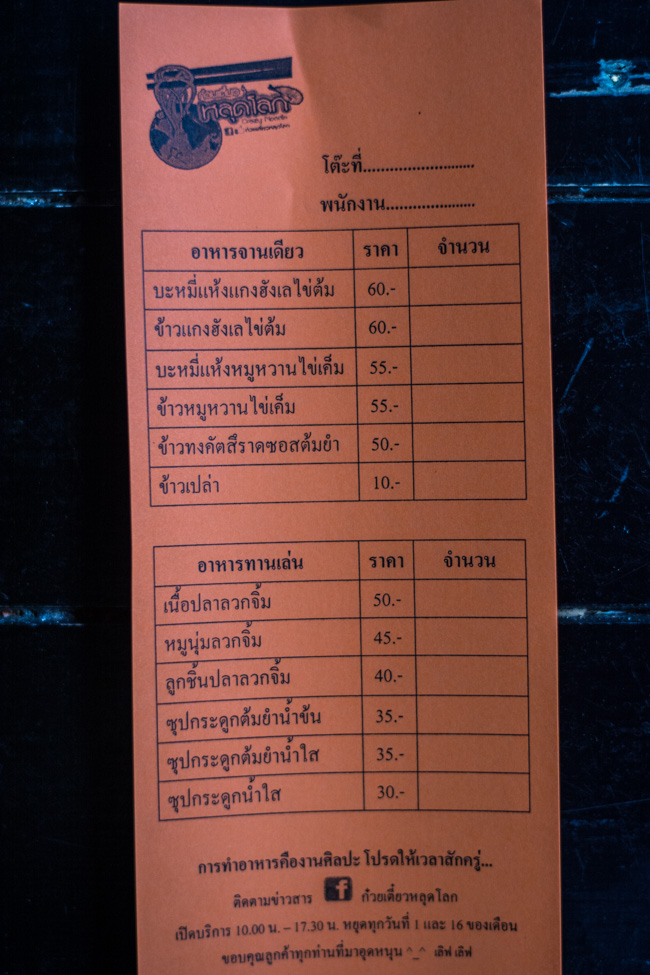 ก๋วยเตี๋ยว
หลุดโลก
Crazy Noodle
ก๋วยเตี๋ยวหลุดโลก
โต๊ะที่.........................
พนักงาน.....................
อาหารจานเดียว ราคา จำนวน
บะหมี่แห้งแกงฮังเลไข่ต้ม 60.-
ข้าวแกงฮังเลไข่ต้ม 60.-
บะหมี่แห้งหมูหวานไข่เค็ม 55.-
ข้าวหมูหวานไข่เค็ม 55.-
ข้าวทงคัตสึราดซอสต้มยำ 50.-
ข้าวเปล่า 10.-
อาหารทานเล่น ราคา จำนวน
เนื้อปลาลวกจิ้ม 50.-
หมูนุ่มลวกจิ้ม 45.-
ลูกชิ้นปลาลวกจิ้ม 40.-
ซุปกระดูกต้มยำน้ำข้น 35.-
ซุปกระดูกต้มยำน้ำใส 35.-
ซุปกระดูกน้ำใส 30.-
การทำอาหารคืองานศิลปะ โปรดให้เวลาสักครู่...
ติดตามข่าวสาร f ก๋วยเตี๋ยวหลุดโลก
เปิดบริการ 10.00 น. – 17.30 น. หยุดทุกวันที่ 1 และ 16 ของเดือน
ขอบคุณลูกค้าทุกท่านที่มาอุดหนุน ^_^ เลิฟ เลิฟ